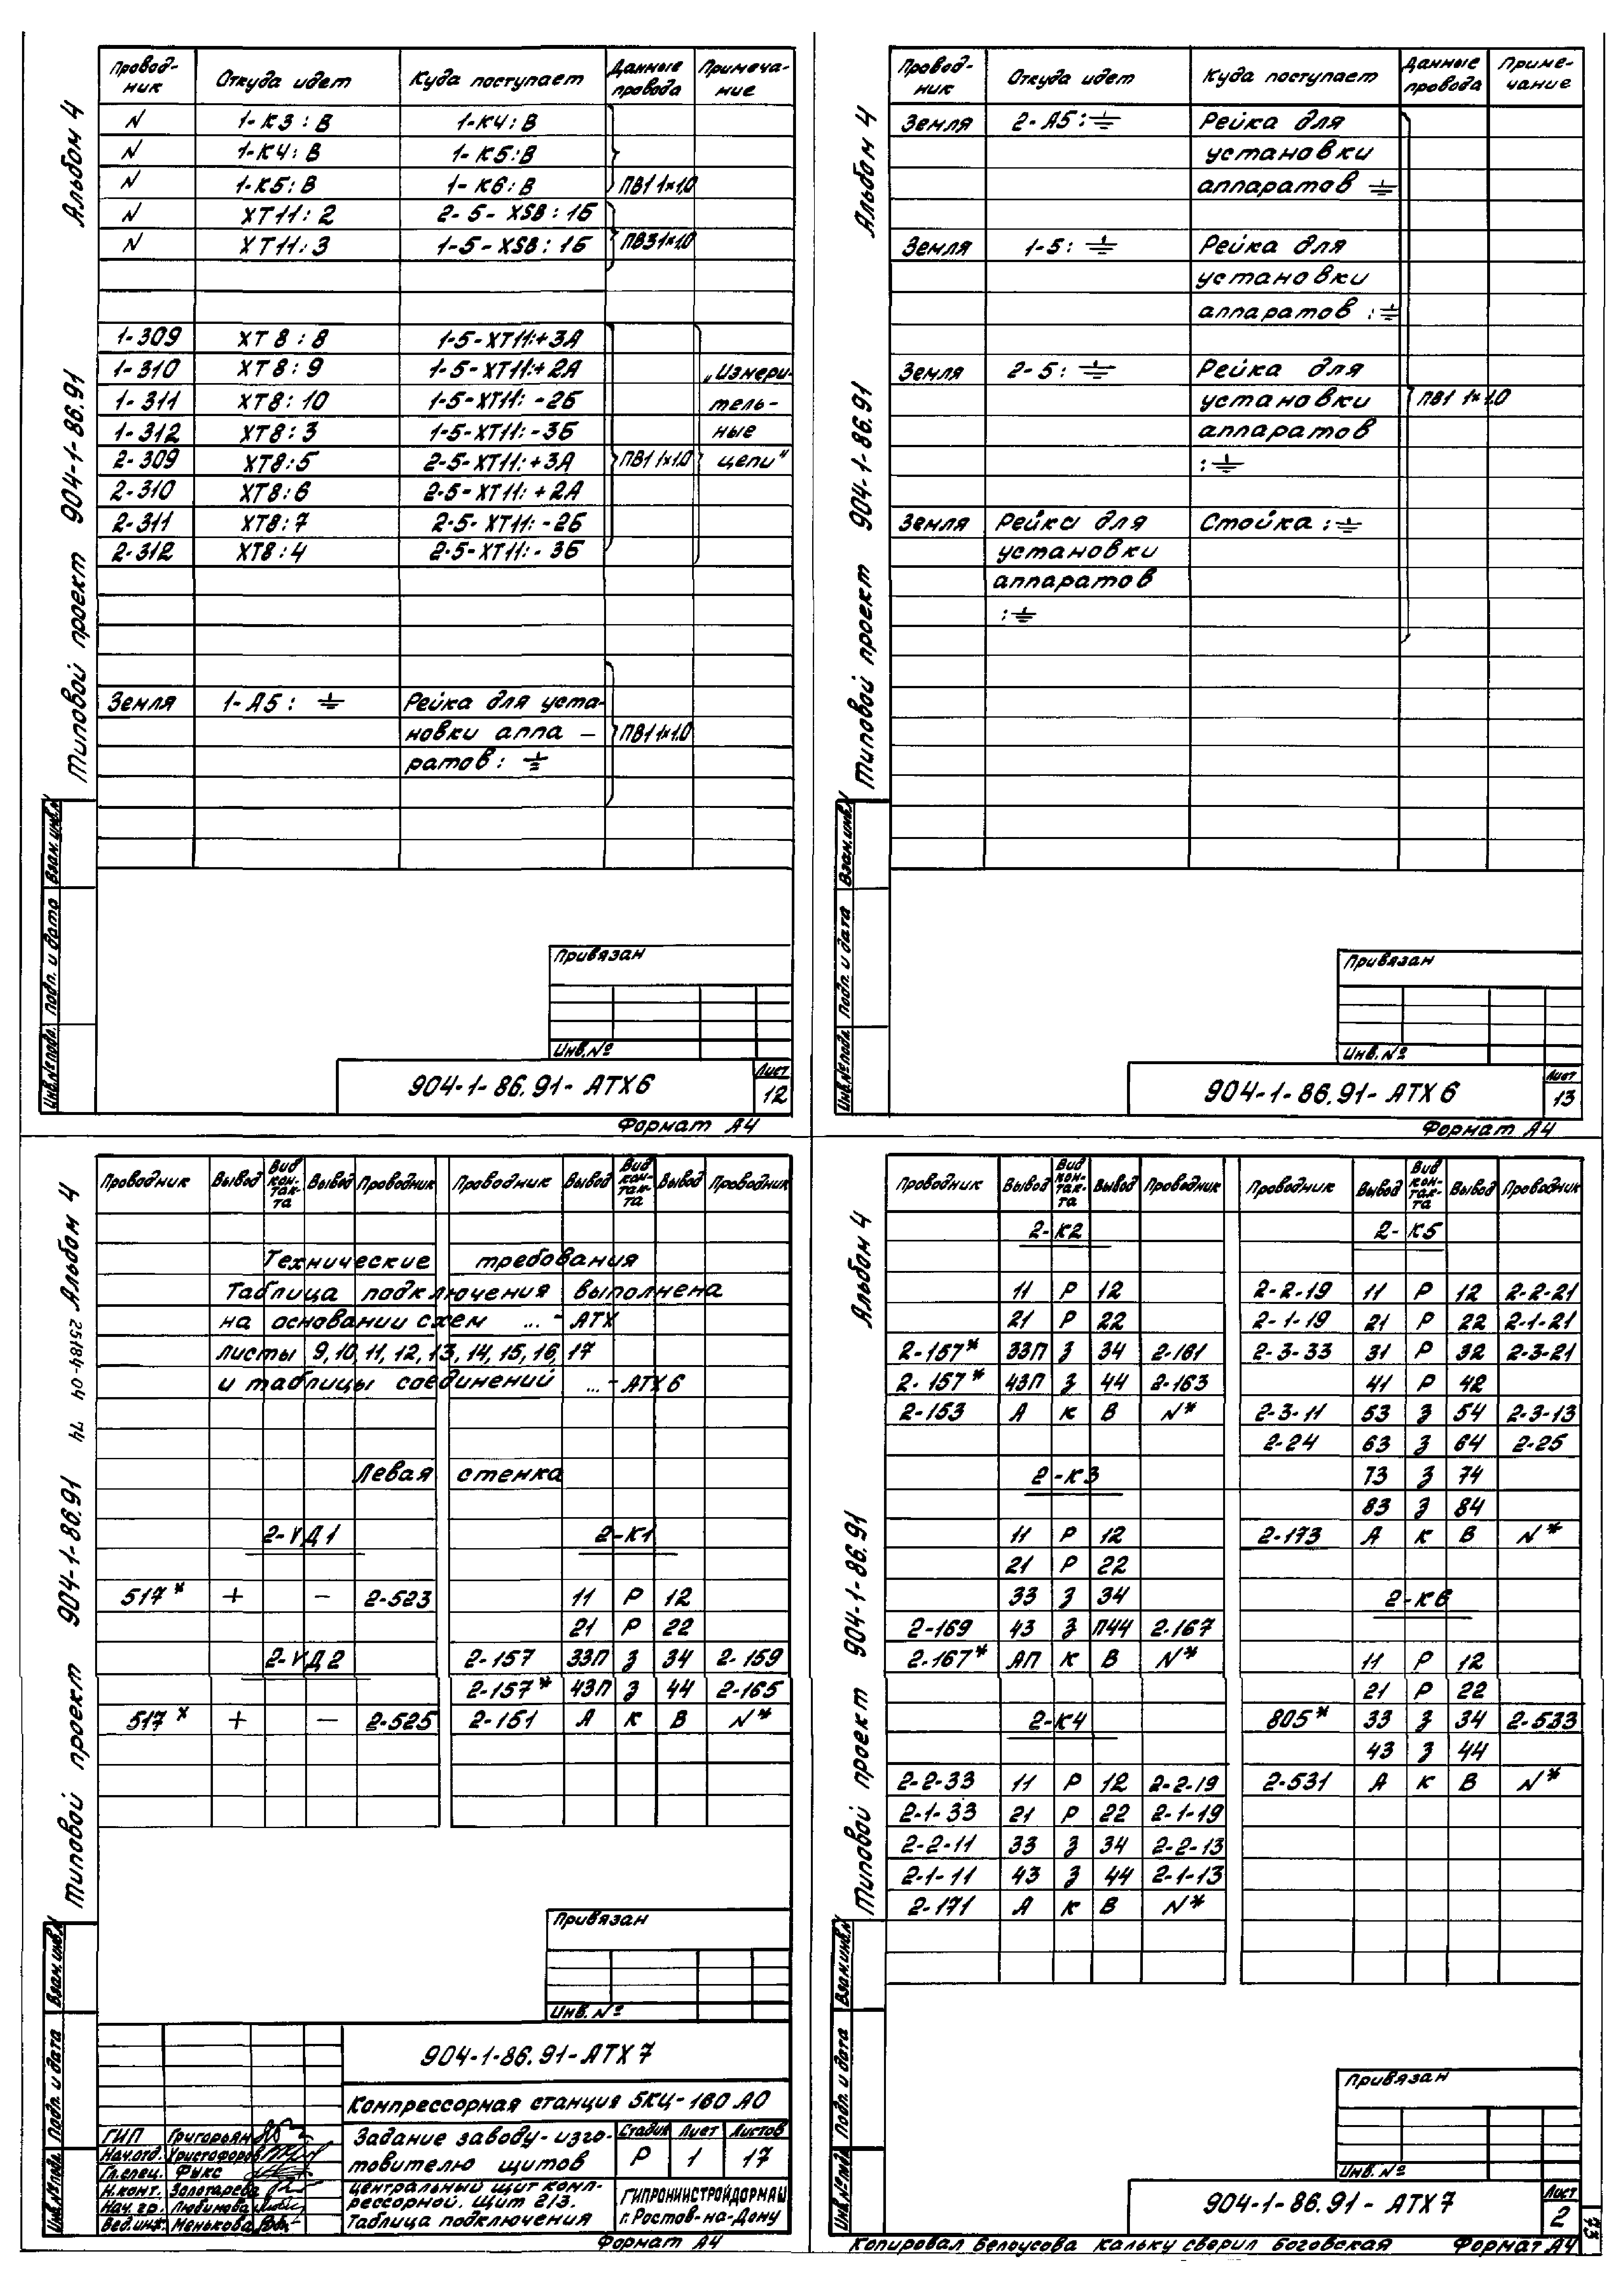 Альбом 4
Типовой проект 904-1-86.91
Провод-ник Откуда идет Куда поступает Данные провода Примеча-ние
N 1-К3:В 1-К4:В
N 1-К4:В 1-К5:В
N 1-К5:В 1-К6:В ПВ1 1×1,0
N ХТ11:2 2-5-XSB:1Б
N ХТ11:3 1-5-XSB:1Б ПВ3 1×1,0
1-309 ХТ8:8 1-5-ХТ11:+3А
1-310 ХТ8:9 1-5-ХТ11:+2А „Измери-
1-311 ХТ8:10 1-5-ХТ11:-2Б тель-
1-312 ХТ8:3 1-5-ХТ11:-3Б ные
2-309 ХТ8:5 2-5-ХТ11:+3А ПВ1 1×1,0 цепи"
2-310 ХТ8:6 2-5-ХТ11:+2А
2-311 ХТ8:7 2-5-ХТ11:-2Б
2-312 ХТ8:4 2-5-ХТ11:-3Б
Земля 1-А5:⏚ Рейка для уста-
новки аппа- ПВ1 1×1,0
ратов:⏚
Взам.инв.N
Подп. и дата
Инв.№подл.
Привязан
Инв.№
904-1-86.91-АТХ6 Лист 12
Формат А4
Альбом 4
Типовой проект 904-1-86.91
Провод-ник Откуда идет Куда поступает Данные провода Приме-чание
Земля 2-А5:⏚ Рейка для
установки
аппаратов ⏚
Земля 1-5:⏚ Рейка для
установки
аппаратов:⏚
Земля 2-5:⏚ Рейка для
установки ПВ1 1×1,0
аппаратов
:⏚
Земля Рейка для Стойка:⏚
установки
аппаратов
:⏚
Взам.инв.N
Подп. и дата
Инв.№подл.
Привязан
Инв.№
904-1-86.91-АТХ6 Лист 13
Формат А4
Типовой проект 904-1-86.91 74 25184-04 Альбом 4
Проводник Вывод Вид кон-так-та Вывод Проводник Проводник Вывод Вид кон-так-та Вывод Проводник
Технические требования
Таблица подключения выполнена
на основании схем ...-АТХ
листы 9,10,11,12,13,14,15,16,17
и таблицы соединений ...-АТХ6
Левая стенка
2-VД1 2-К1
517* + - 2-523 11 Р 12
21 Р 22
2-VД2 2-157 33П З 34 2-159
2-157* 43П З 44 2-165
517* + - 2-525 2-151 А К В N*
Взам.инв.N
Подп. и дата
Инв.№подл.
Привязан
Инв.№
904-1-86.91-АТХ7
Компрессорная станция 5КЦ-160 АО
ГИП Григорьян
Нач.отд. Христофоров
Гл.спец. Фукс
Н.конт. Золотарева
Нач.гр. Любимова
Вед.инж. Менькова
Задание заводу-изго-
товителю щитов
Стадия Лист Листов
Р 1 17
Центральный щит комп-
рессорной. Щит 2/3.
Таблица подключения
ГИПРОНИИСТРОЙДОРМАШ
г.Ростов-на-Дону
Формат А4
Альбом 4
Типовой проект 904-1-86.91
Проводник Вывод Вид кон-так-та Вывод Проводник Проводник Вывод Вид кон-так-та Вывод Проводник
2-К2 2-К5
11 Р 12 2-2-19 11 Р 12 2-2-21
21 Р 22 2-1-19 21 Р 22 2-1-21
2-157* 33П З 34 2-161 2-3-33 31 Р 32 2-3-21
2-157* 43П З 44 2-163 41 Р 42
2-153 А К В N* 2-3-11 53 З 54 2-3-13
2-24 63 З 64 2-25
2-К3 73 З 74
83 З 84
11 Р 12 2-173 А К В N*
21 Р 22
33 З 34 2-К6
2-169 43 З П44 2-167
2-167* АП К В N* 11 Р 12
21 Р 22
2-К4 805* 33 З 34 2-533
43 З 44
2-2-33 11 Р 12 2-2-19 2-531 А К В N*
2-1-33 21 Р 22 2-1-19
2-2-11 33 З 34 2-2-13
2-1-11 43 З 44 2-1-13
2-171 А К В N*
Взам.инв.N
Подп. и дата
Инв.№подл.
Привязан
Инв.№
904-1-86.91-АТХ7 Лист 2
73
Копировал Белоусова Кальку сверил Боговская Формат А4